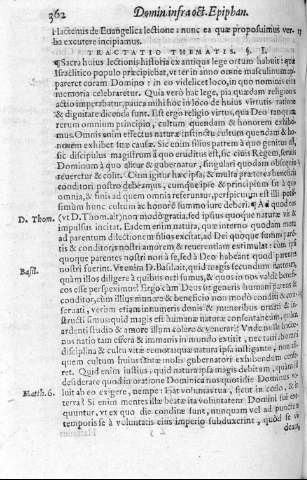 362 Domin. infra oct. Epiphan.
Hactenus de Euangelica lectione: nunc ea quæ proposuimus ver-
ba excutere incipiamus.
TRACTATIO THEMATIS. §. I.
¶Sacra huius lectionis historia ex antiqua lege ortum habuit: qua
Israelitico populo præcipiebat, vt ter in anno omne masculinum ap-
pareret coram Domino: in eo videlicet loco, in quo nominis eius
memoria celebraretur. Quia verò hæc lege, pia quædam religionis
actio imperabatur, pauca mihi hoc in loco de huius virtutis ratione
& dignitate dicenda sunt. Est ergo religio virtus, qua Deo tanquam
rerum omnium principio, cultum quendam & honorem exhibe-
mus. Omnis enim effectus naturæ instinctu cultum quendam & ho-
norem exhibet suæ causæ. Sic enim filius patrem à quo genitus est,
sic discipulus magistrum à quo eruditus est, sic ciuis Regem, seruus
Dominum à quo alitur & gubernatur, singulari quodam obsequio
reueretur & colit. Cùm igitur hæc ipsa, & multa præterea beneficia
conditori nostro debeamus, cumque ipse & principium sit à quo
omnia, & finis ad quem omnia referuntur, perspicuum est illi pos-
simum hunc cultum ac honorè summo iure deberi. ¶Ad quod nos
D. Thom. (vt D. Thom. ait) non modò gratia, sed ipsius quoque naturæ vis &
impulsus incitat. Eadem enim natura, quæ interno quodam motu
ad parentum dilectionem filios excitat, ad hunc quoque
& conditoris nostri amorem & reuerentiam stimulat: cùm ipsi
quoque parentes nostri non à se, sed à Deo habeant quod parentes
Basil. nostri fuerint. Vt enim D. Basil. ait, quid magis secundum naturam,
quàm illos diligere à quibus orti sumus, & quos erga nos
cos esse perspeximus? Ergo cùm Deus sit generis humani parens &
conditor, cùm illius munere & beneficio non modò conditi & con-
seruati, verum etiam innumeris donis & muneribus ornati & in-
structi simus, quid magis est humanæ naturæ consentaneum, quàm
ardenti studio & amore illum colere & venerari? Vnde nulla
nos natio tam effera & immanis in mundo extitit, nec tam
disciplina & cultu vitæ remota, quæ natura ipsa instigante, non ali-
quem cultum huius Opificis mundi gubernatori exhibendum cense-
ret. Quid enim iustius: quid natura ipsa magis debitum, quàm id
desiderare quod in oratione Dominica nos quotidie Dominus vo-
Math. 6. luit ab eo exigere, nempe: Fiat voluntas tua, sicut in cœlo, & in
terra? Si enim mentes illæ beatæ ita voluntatem Domini sui
quuntur, vt ex quo die conditæ sunt, nunquam vel ad punctum
temporis se à voluntatis eius imperio subduxerint, quod se vi-
deat,